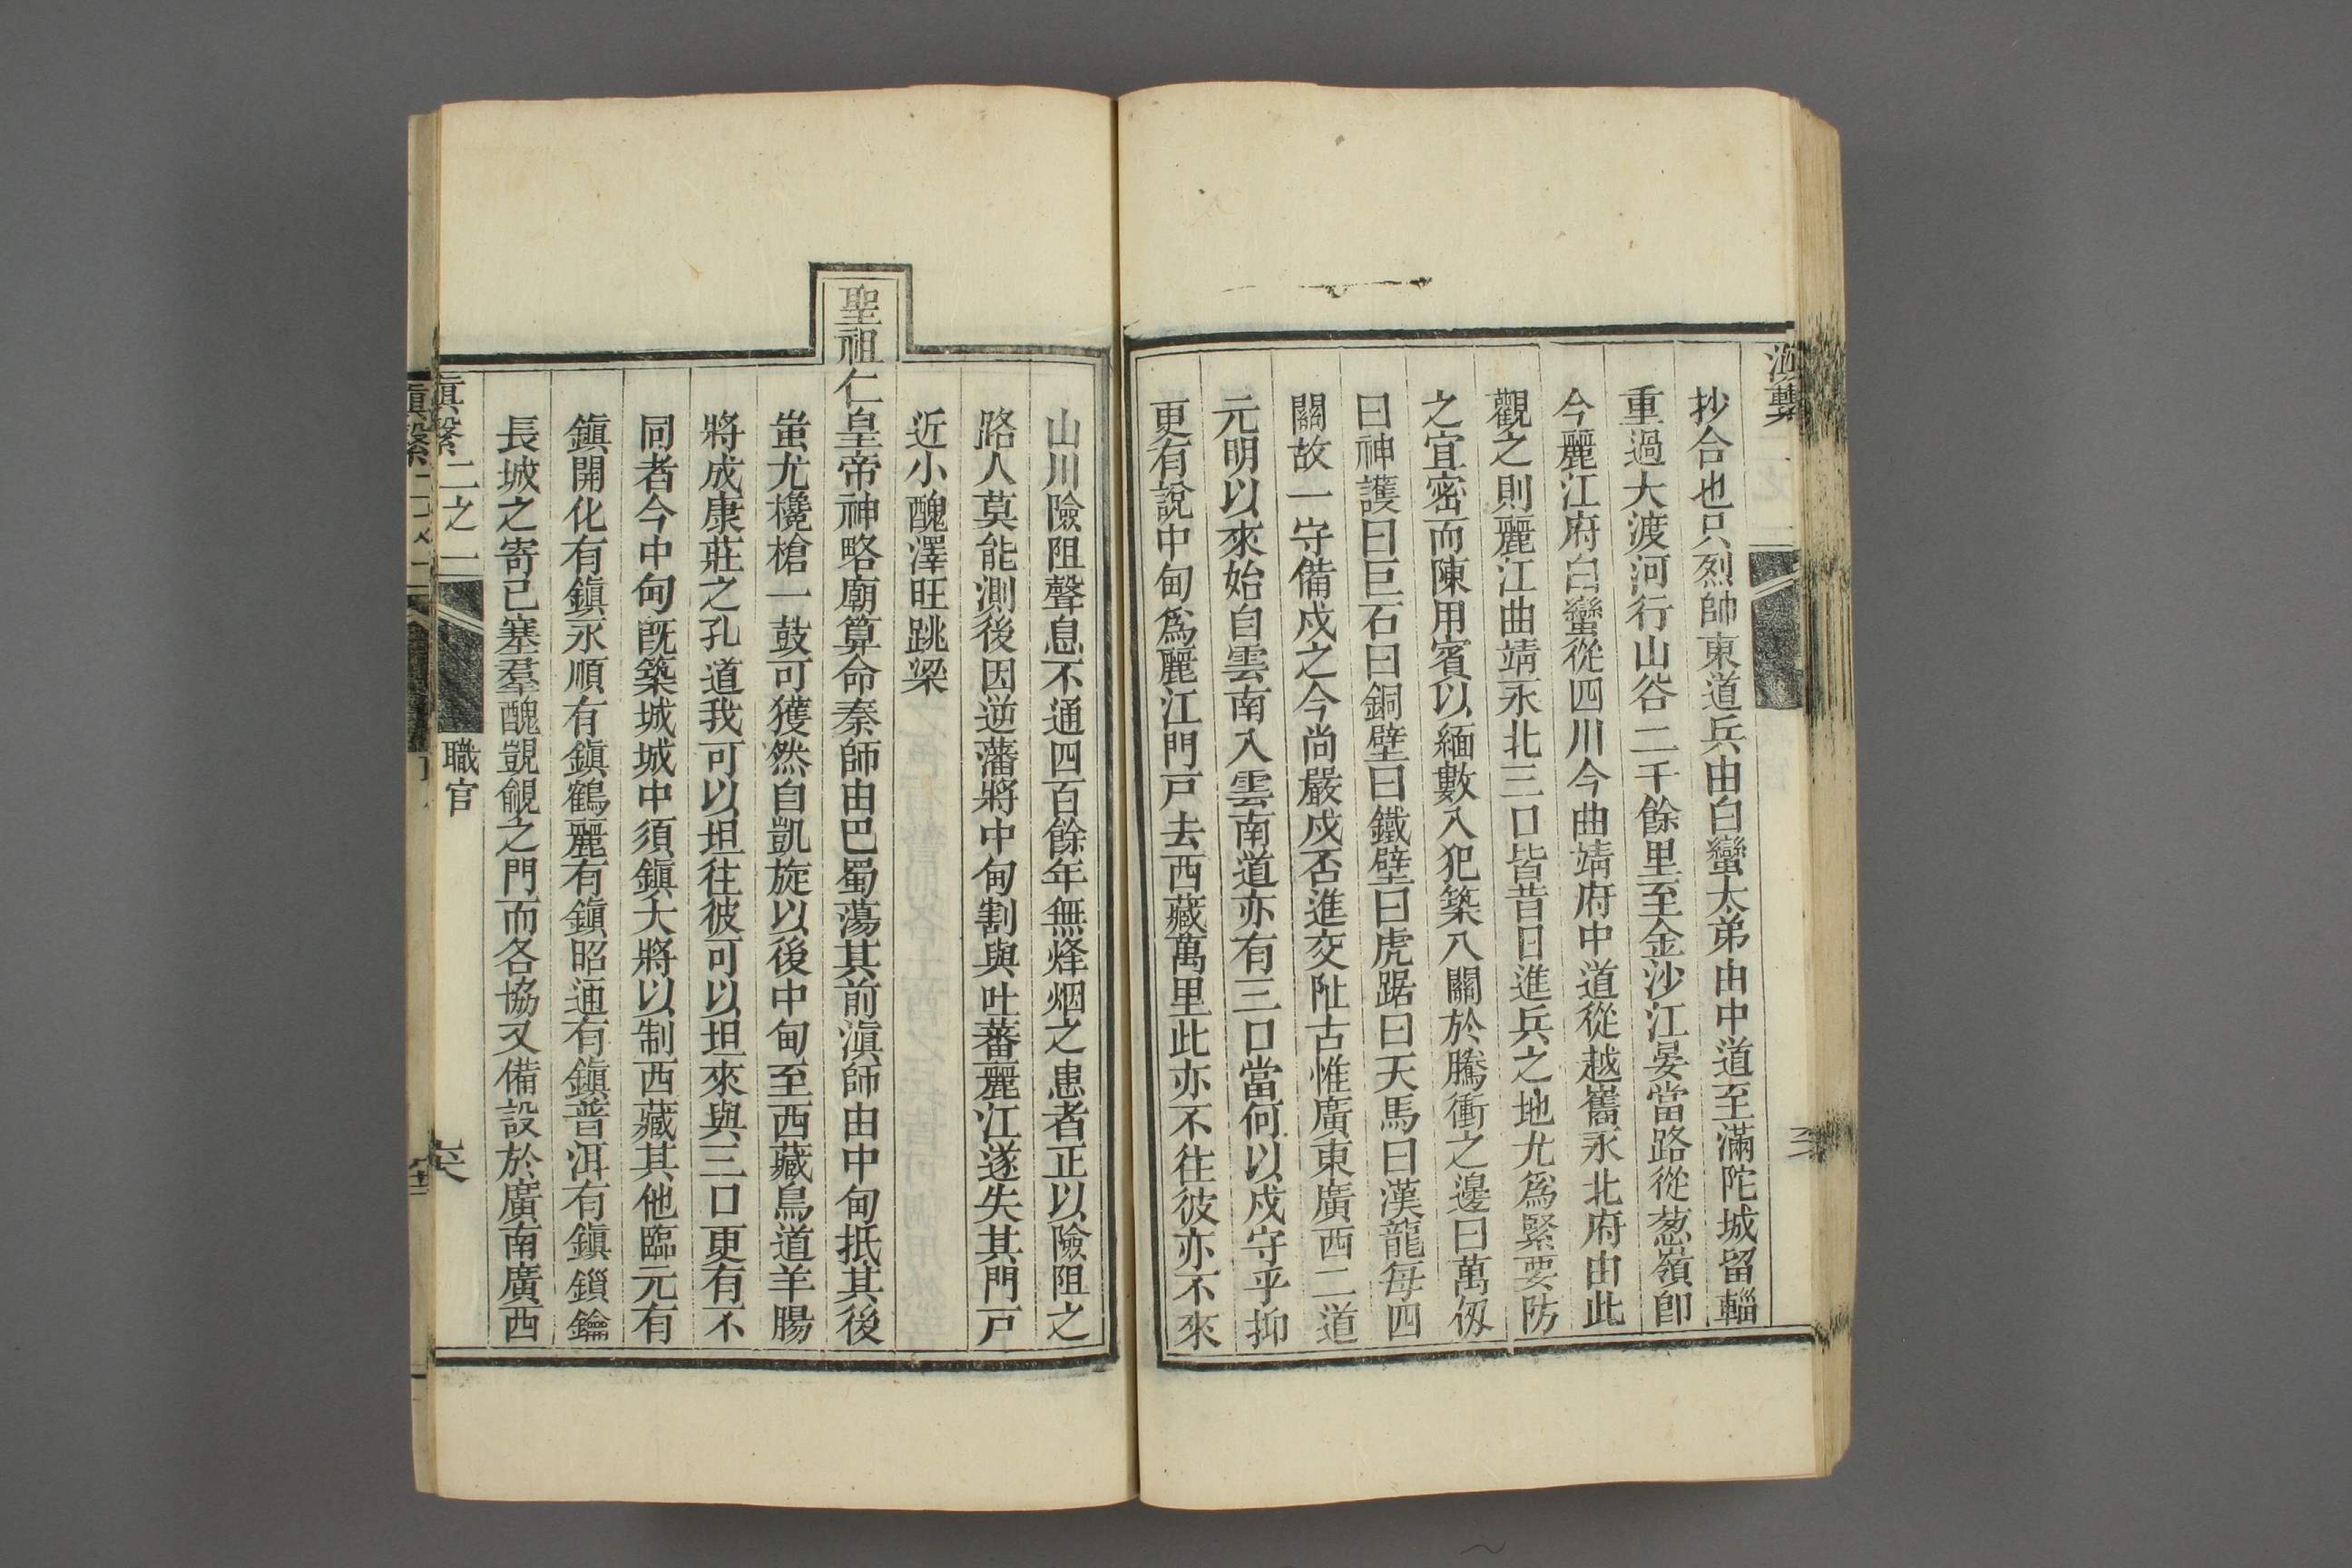 抄合也只烈帥東道兵由白蠻太弟由中道至滿陀城留輜
重過大渡河行山谷二千餘里至金沙江晏當路從葱嶺卽
今麗江府白蠻從四川今曲靖府中道從越嶲永北府由此
觀之則麗江曲靖永北三口皆昔日進兵之地尤爲緊要防
之宜密而陳用賓以緬數入犯築八關於騰衝之邊曰萬仭
曰神護曰巨石曰銅壁曰鐵壁曰虎踞曰天馬曰漢龍每四
關故一守備戍之今尚嚴戍否進交阯古惟廣東廣西二道
元明以來始自雲南入雲南道亦有三口當何以戍守乎抑
更有說中甸爲麗江門戸去西藏萬里此亦不往彼亦不來
山川險阻聲息不通四百餘年無烽烟之患者正以險阻之
路人莫能測後因逆藩將中甸割與吐蕃麗江遂失其門戸
近小醜澤旺跳梁
聖祖仁皇帝神略廟算命秦師由巴蜀蕩其前滇師由中甸抵其後
蚩尤欃槍一鼓可獲然自凱旋以後中甸至西藏鳥道羊腸
將成康莊之孔道我可以坦往彼可以坦來與三口更有不
同者今中甸既築城城中須鎭大將以制西藏其他臨元有
鎭開化有鎭永順有鎭鶴麗有鎭昭通有鎭普洱有鎭鎻鑰
長城之寄已塞羣醜覬覦之門而各協又備設於廣南廣西
滇繫 二之一 職官